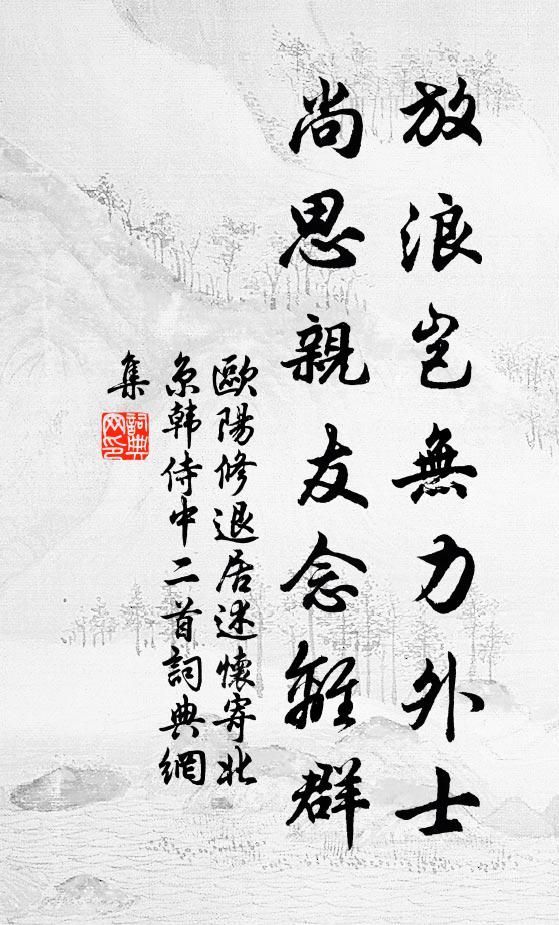 放浪岂無力外士
尚思親友念離群
歐陽修退居述懷寄北
京韩侍中二首詞典網
集
詞典
网印